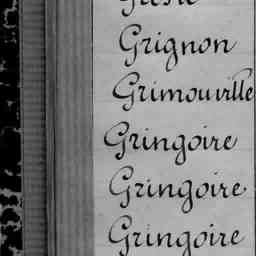 Grignon
Grimouville
Gringoire
Gringoire
Gringoire